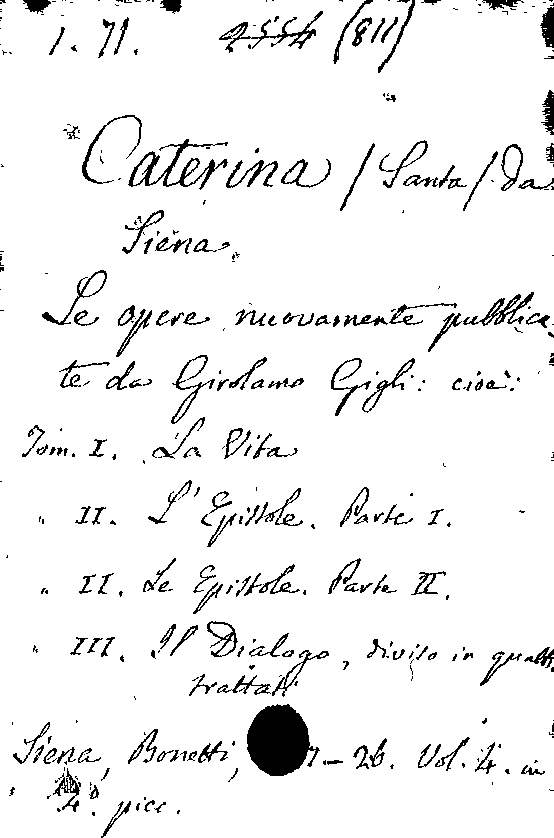 1. 71. 2554 (811)
Caterina / Santa / da
Siena.
Le opere nuovamente pubblica-
te da Girolamo Gigli: cioè:
Tom. I. La Vita
" II. L'Epistole. Parte I.
" II. Le Epistole. Parte II.
" III. Il Dialogo, diviso in quatt
trattati
Siena, Bonetti, 7-26. Vol. 4. in
4.° picc.